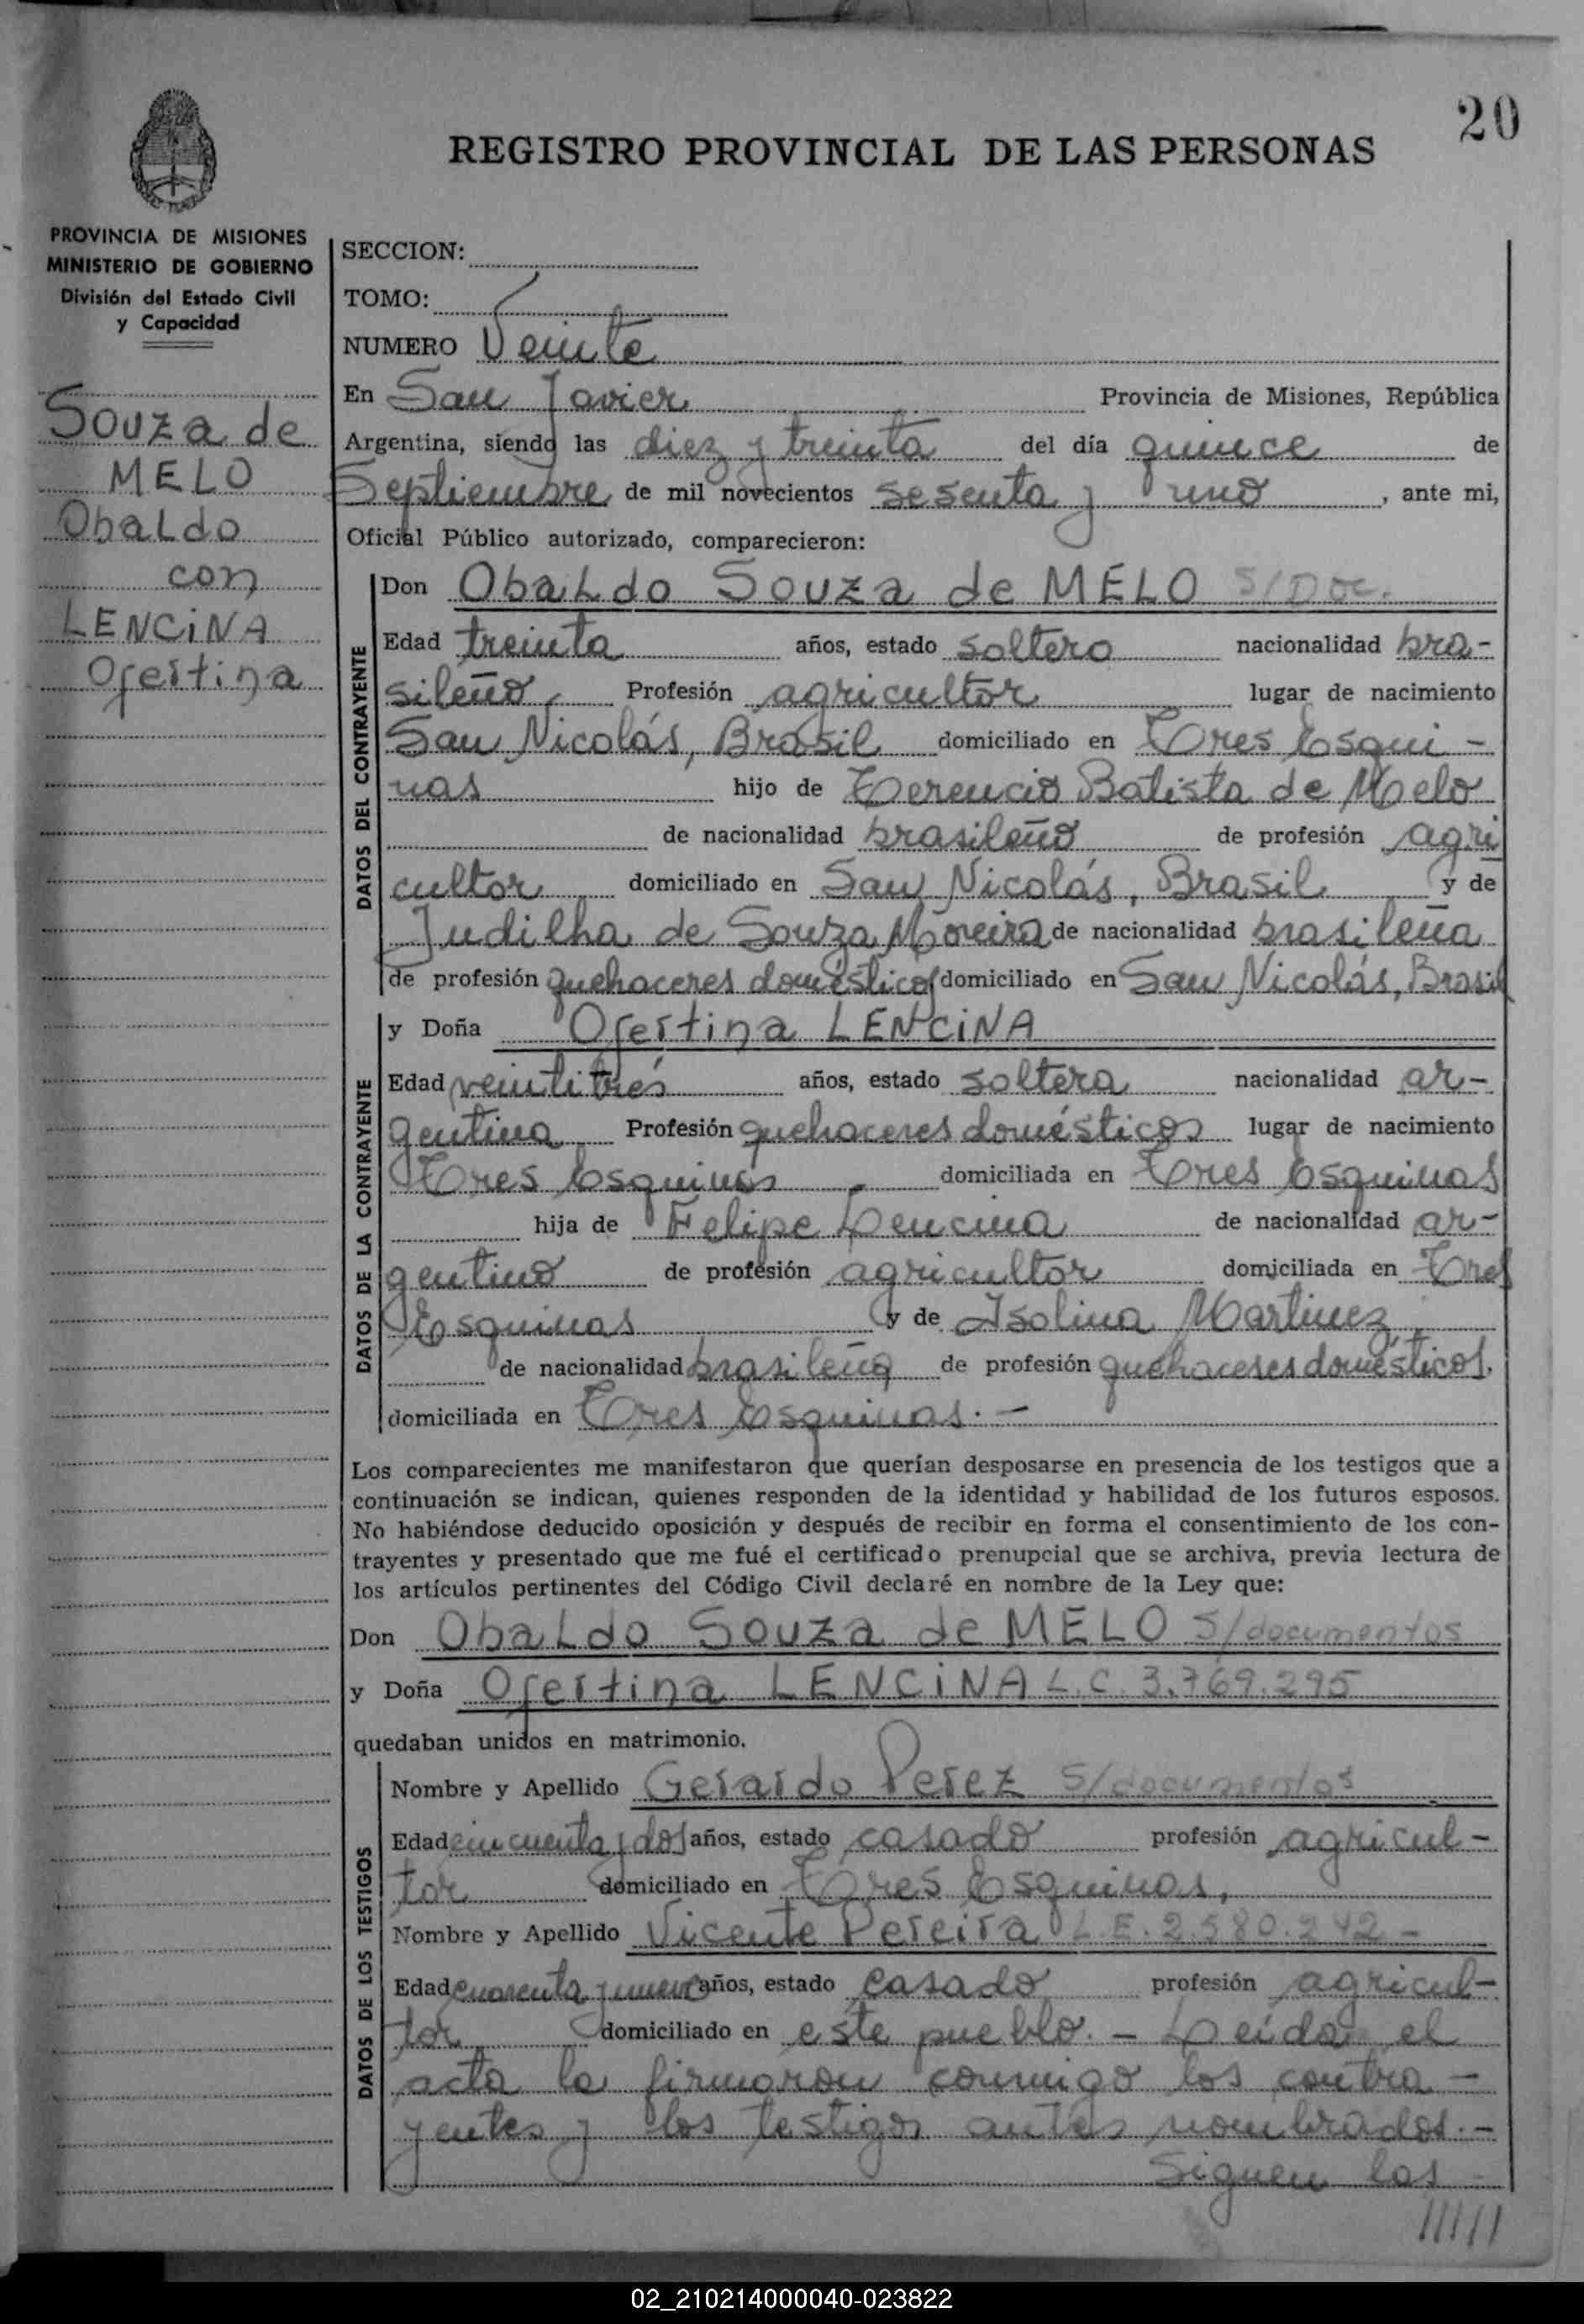 20
REGISTRO PROVINCIAL DE LAS PERSONAS
PROVINCIA DE MISIONES
MINISTERIO DE GOBIERNO
División del Estado Civil
y Capacidad
Souza de
MELO
Obaldo
con
LENCINA
Ofertina
SECCION:
TOMO:
NUMERO Veinte
En San Javier Provincia de Misiones, República
Argentina, siendo las diez y treinta del día quince de
Septiembre de mil novecientos sesenta y uno, ante mi,
Oficial Público autorizado, comparecieron:
DATOS DEL CONTRAYENTE
Don Obaldo Souza de MELO S/Doc.
Edad treinta años, estado soltero nacionalidad bra-
sileño Profesión agricultor lugar de nacimiento
San Nicolás, Brasil domiciliado en Tres Esqui-
nas hijo de Terencio Batista de Melo
de nacionalidad brasileño de profesión agri
cultor domiciliado en San Nicolás, Brasil y de
Judilha de Souza Moreira de nacionalidad brasileña
de profesión quehaceres domésticos domiciliado en San Nicolás, Brasil
DATOS DE LA CONTRAYENTE
y Doña Ofertina LENCINA
Edad veintitrés años, estado soltera nacionalidad ar-
gentina Profesión quehaceres domésticos lugar de nacimiento
Tres Esquinas domiciliada en Tres Esquinas
hija de Felipe Lencina de nacionalidad ar-
gentino de profesión agricultor domiciliada en Tres
Esquinas y de Isolina Martinez
de nacionalidad brasileña de profesión quehaceres domésticos,
domiciliada en Tres Esquinas.-
Los comparecientes me manifestaron que querían desposarse en presencia de los testigos que a
continuación se indican, quienes responden de la identidad y habilidad de los futuros esposos.
No habiéndose deducido oposición y después de recibir en forma el consentimiento de los con-
trayentes y presentado que me fué el certificado prenupcial que se archiva, previa lectura de
los artículos pertinentes del Código Civil declaré en nombre de la Ley que:
Don Obaldo Souza de MELO S/documentos
y Doña Ofertina LENCINA L.C. 3.769.295
quedaban unidos en matrimonio.
DATOS DE LOS TESTIGOS
Nombre y Apellido Gerardo Perez S/documentos
Edad cincuenta y dos años, estado casado profesión agricul-
tor domiciliado en Tres Esquinas,
Nombre y Apellido Vicente Pereira L.E. 2.580.242-
Edad cuarenta y nueve años, estado casado profesión agricul-
tor domiciliado en este pueblo.- Leída el
acta la firmaron conmigo los contra-
yentes y los testigos antes nombrados.-
Siguen las
//////
02_210214000040-023822